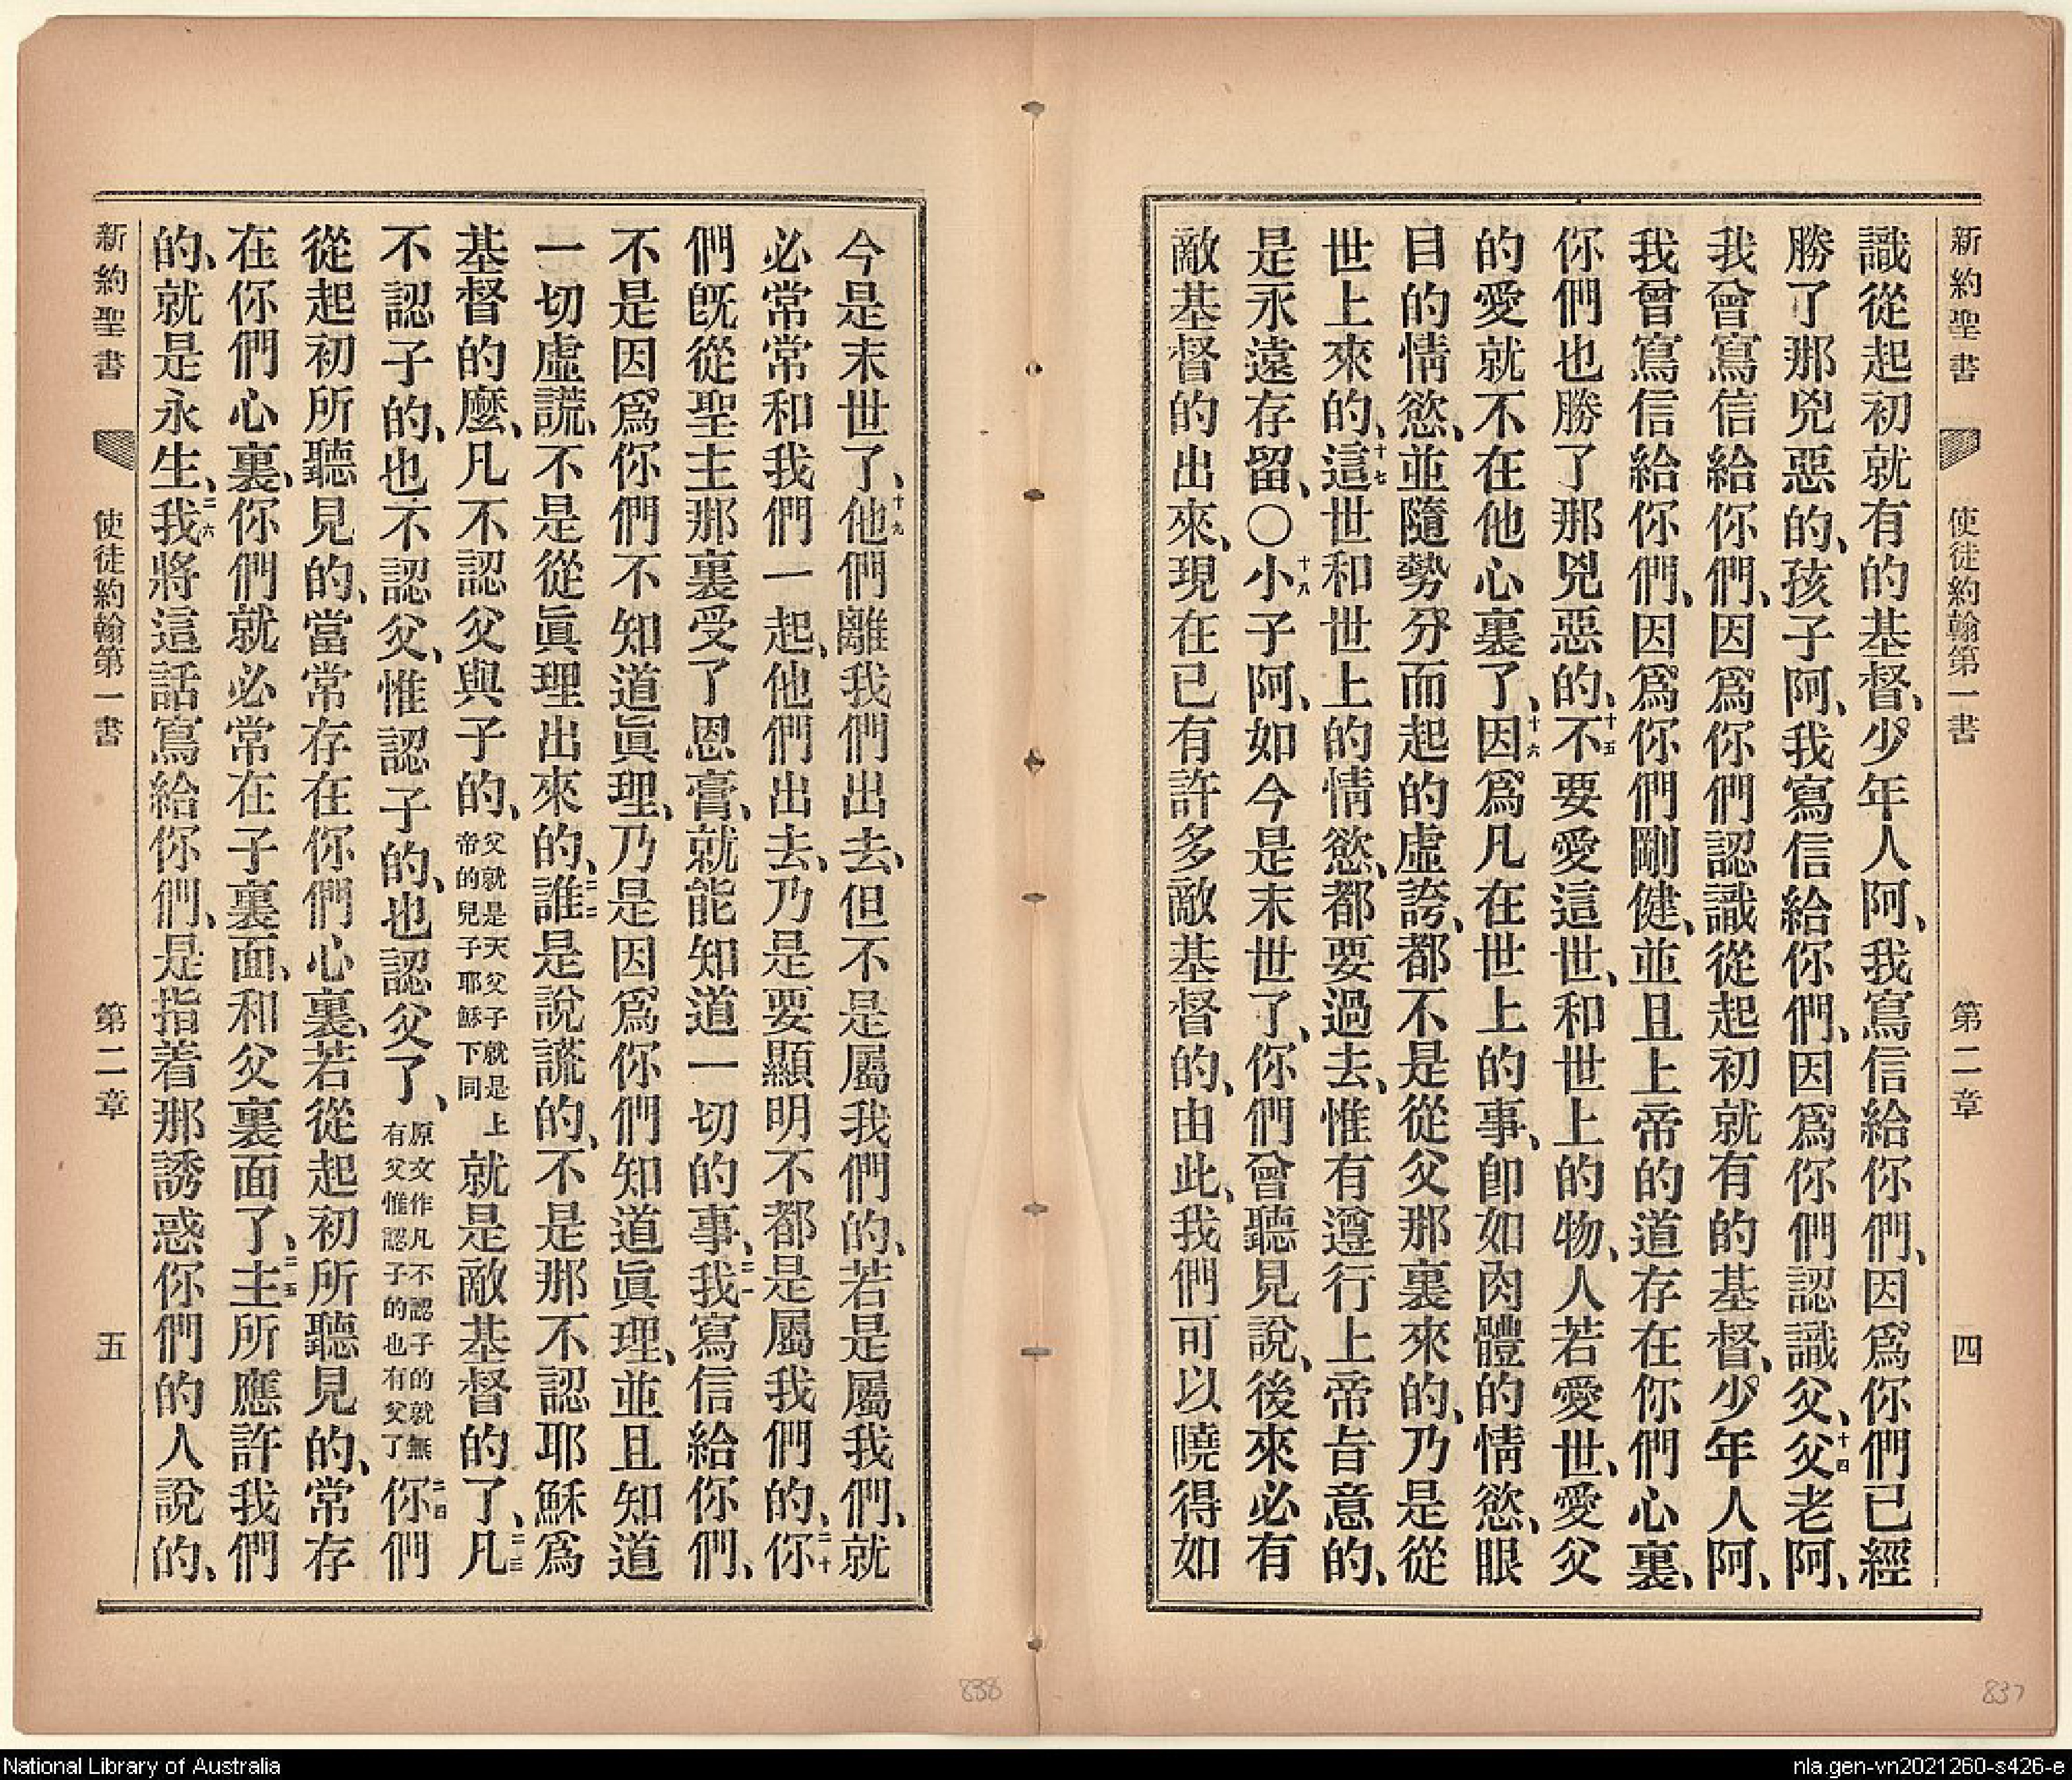 新約聖書 使徒約翰第一書 第二章 四
識從起初就有的基督、少年人阿、我寫信給你們、因爲你們已經
勝了那兇惡的、孩子阿、我寫信給你們、因爲你們認識父、十四父老阿、
我曾寫信給你們、因爲你們認識從起初就有的基督、少年人阿、
我曾寫信給你們、因爲你們剛健、並且上帝的道存在你們心裏、
你們也勝了那兇惡的、十五不要愛這世、和世上的物、人若愛世、愛父
的愛就不在他心裏了、十六因爲凡在世上的事、卽如肉體的情慾、眼
目的情慾、並隨勢分而起的虛誇、都不是從父那裏來的、乃是從
世上來的、十七這世和世上的情慾、都要過去、惟有遵行上帝旨意的、
是永遠存留、○十八小子阿、如今是末世了、你們曾聽見說、後來必有
敵基督的出來、現在已有許多敵基督的、由此、我們可以曉得如
今是末世了、十九他們離我們出去、但不是屬我們的、若是屬我們、就
必常常和我們一起、他們出去、乃是要顯明不都是屬我們的、二十你
們旣從聖主那裏受了恩膏、就能知道一切的事、二一我寫信給你們、
不是因爲你們不知道眞理、乃是因爲你們知道眞理、並且知道
一切虛謊、不是從眞理出來的、二二誰是說謊的、不是那不認耶穌爲
基督的麼、凡不認父與子的、父就是天父子就是上帝的兒子耶穌下同就是敵基督的了、二三凡
不認子的、也不認父、惟認子的、也認父了、原文作凡不認子的就無有父惟認子的也有父了二四你們
從起初所聽見的、當常存在你們心裏、若從起初所聽見的、常存
在你們心裏、你們就必常在子裏面、和父裏面了、二五主所應許我們
的、就是永生、二六我將這話寫給你們、是指着那誘惑你們的人說的、
新約聖書 使徒約翰第一書 第二章 五
838
837
National Library of Australia
nla.gen-vn2021260-s426-e